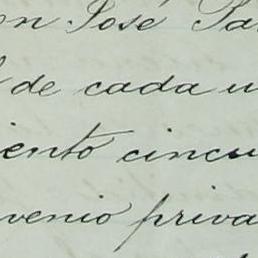 on José Pa
de cada u
iento cincu
venio priva